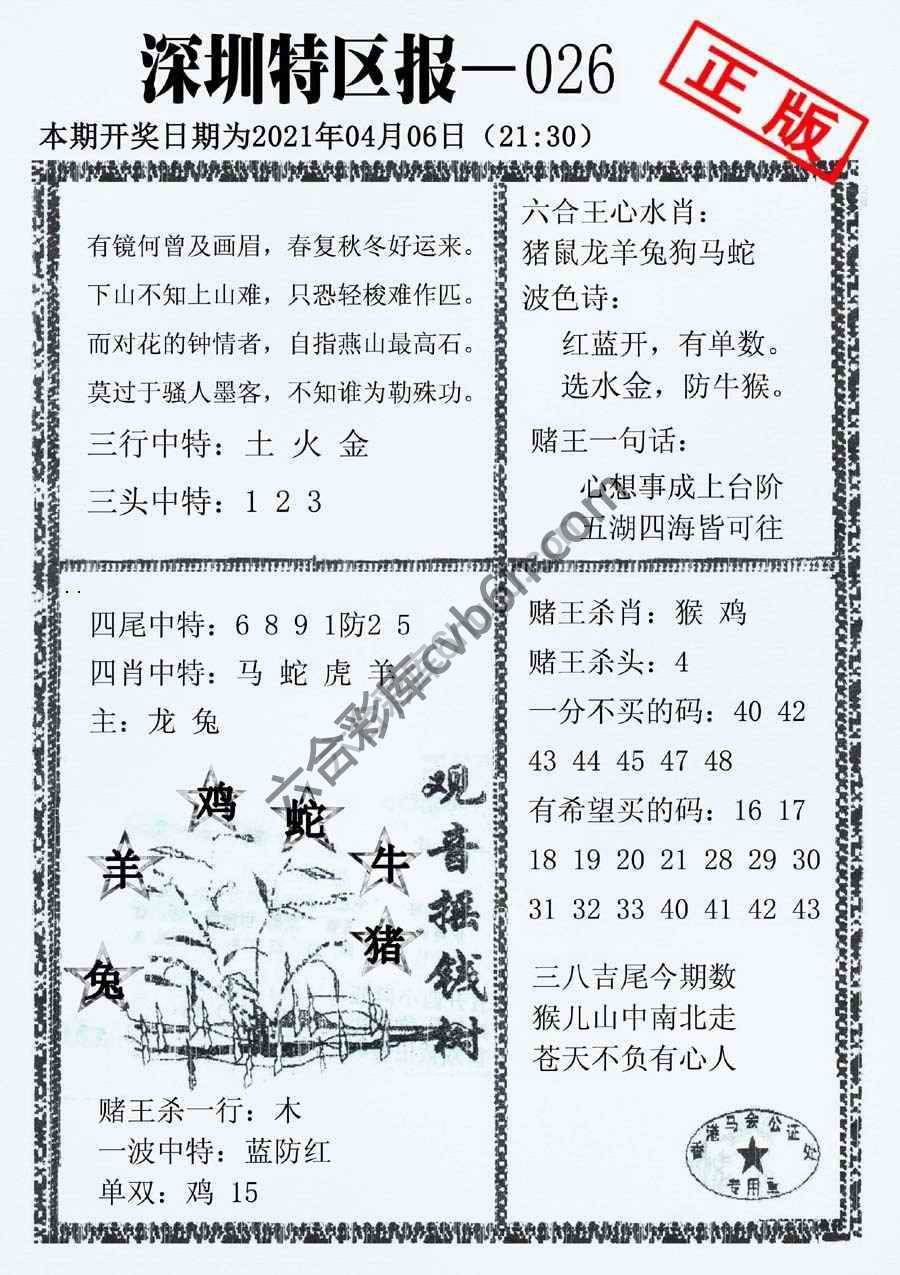 深圳特区报—026
正版
本期开奖日期为2021年04月06日（21:30）
有镜何曾及画眉，春复秋冬好运来。
下山不知上山难，只恐轻梭难作匹。
而对花的钟情者，自指燕山最高石。
莫过于骚人墨客，不知谁为勒殊功。
三行中特：土 火 金
三头中特：1 2 3
六合王心水肖：
猪鼠龙羊兔狗马蛇
波色诗：
红蓝开，有单数。
选水金，防牛猴。
赌王一句话：
心想事成上台阶
五湖四海皆可往
四尾中特：6 8 9 1防2 5
四肖中特：马 蛇 虎 羊
主：龙 兔
鸡
蛇
羊
牛
猪
兔
观音摇钱树
赌王杀一行：木
一波中特：蓝防红
单双：鸡 15
赌王杀肖：猴 鸡
赌王杀头：4
一分不买的码：40 42
43 44 45 47 48
有希望买的码：16 17
18 19 20 21 28 29 30
31 32 33 40 41 42 43
三八吉尾今期数
猴儿山中南北走
苍天不负有心人
香港马会公证处
专用章
六合彩库cvb6h.com